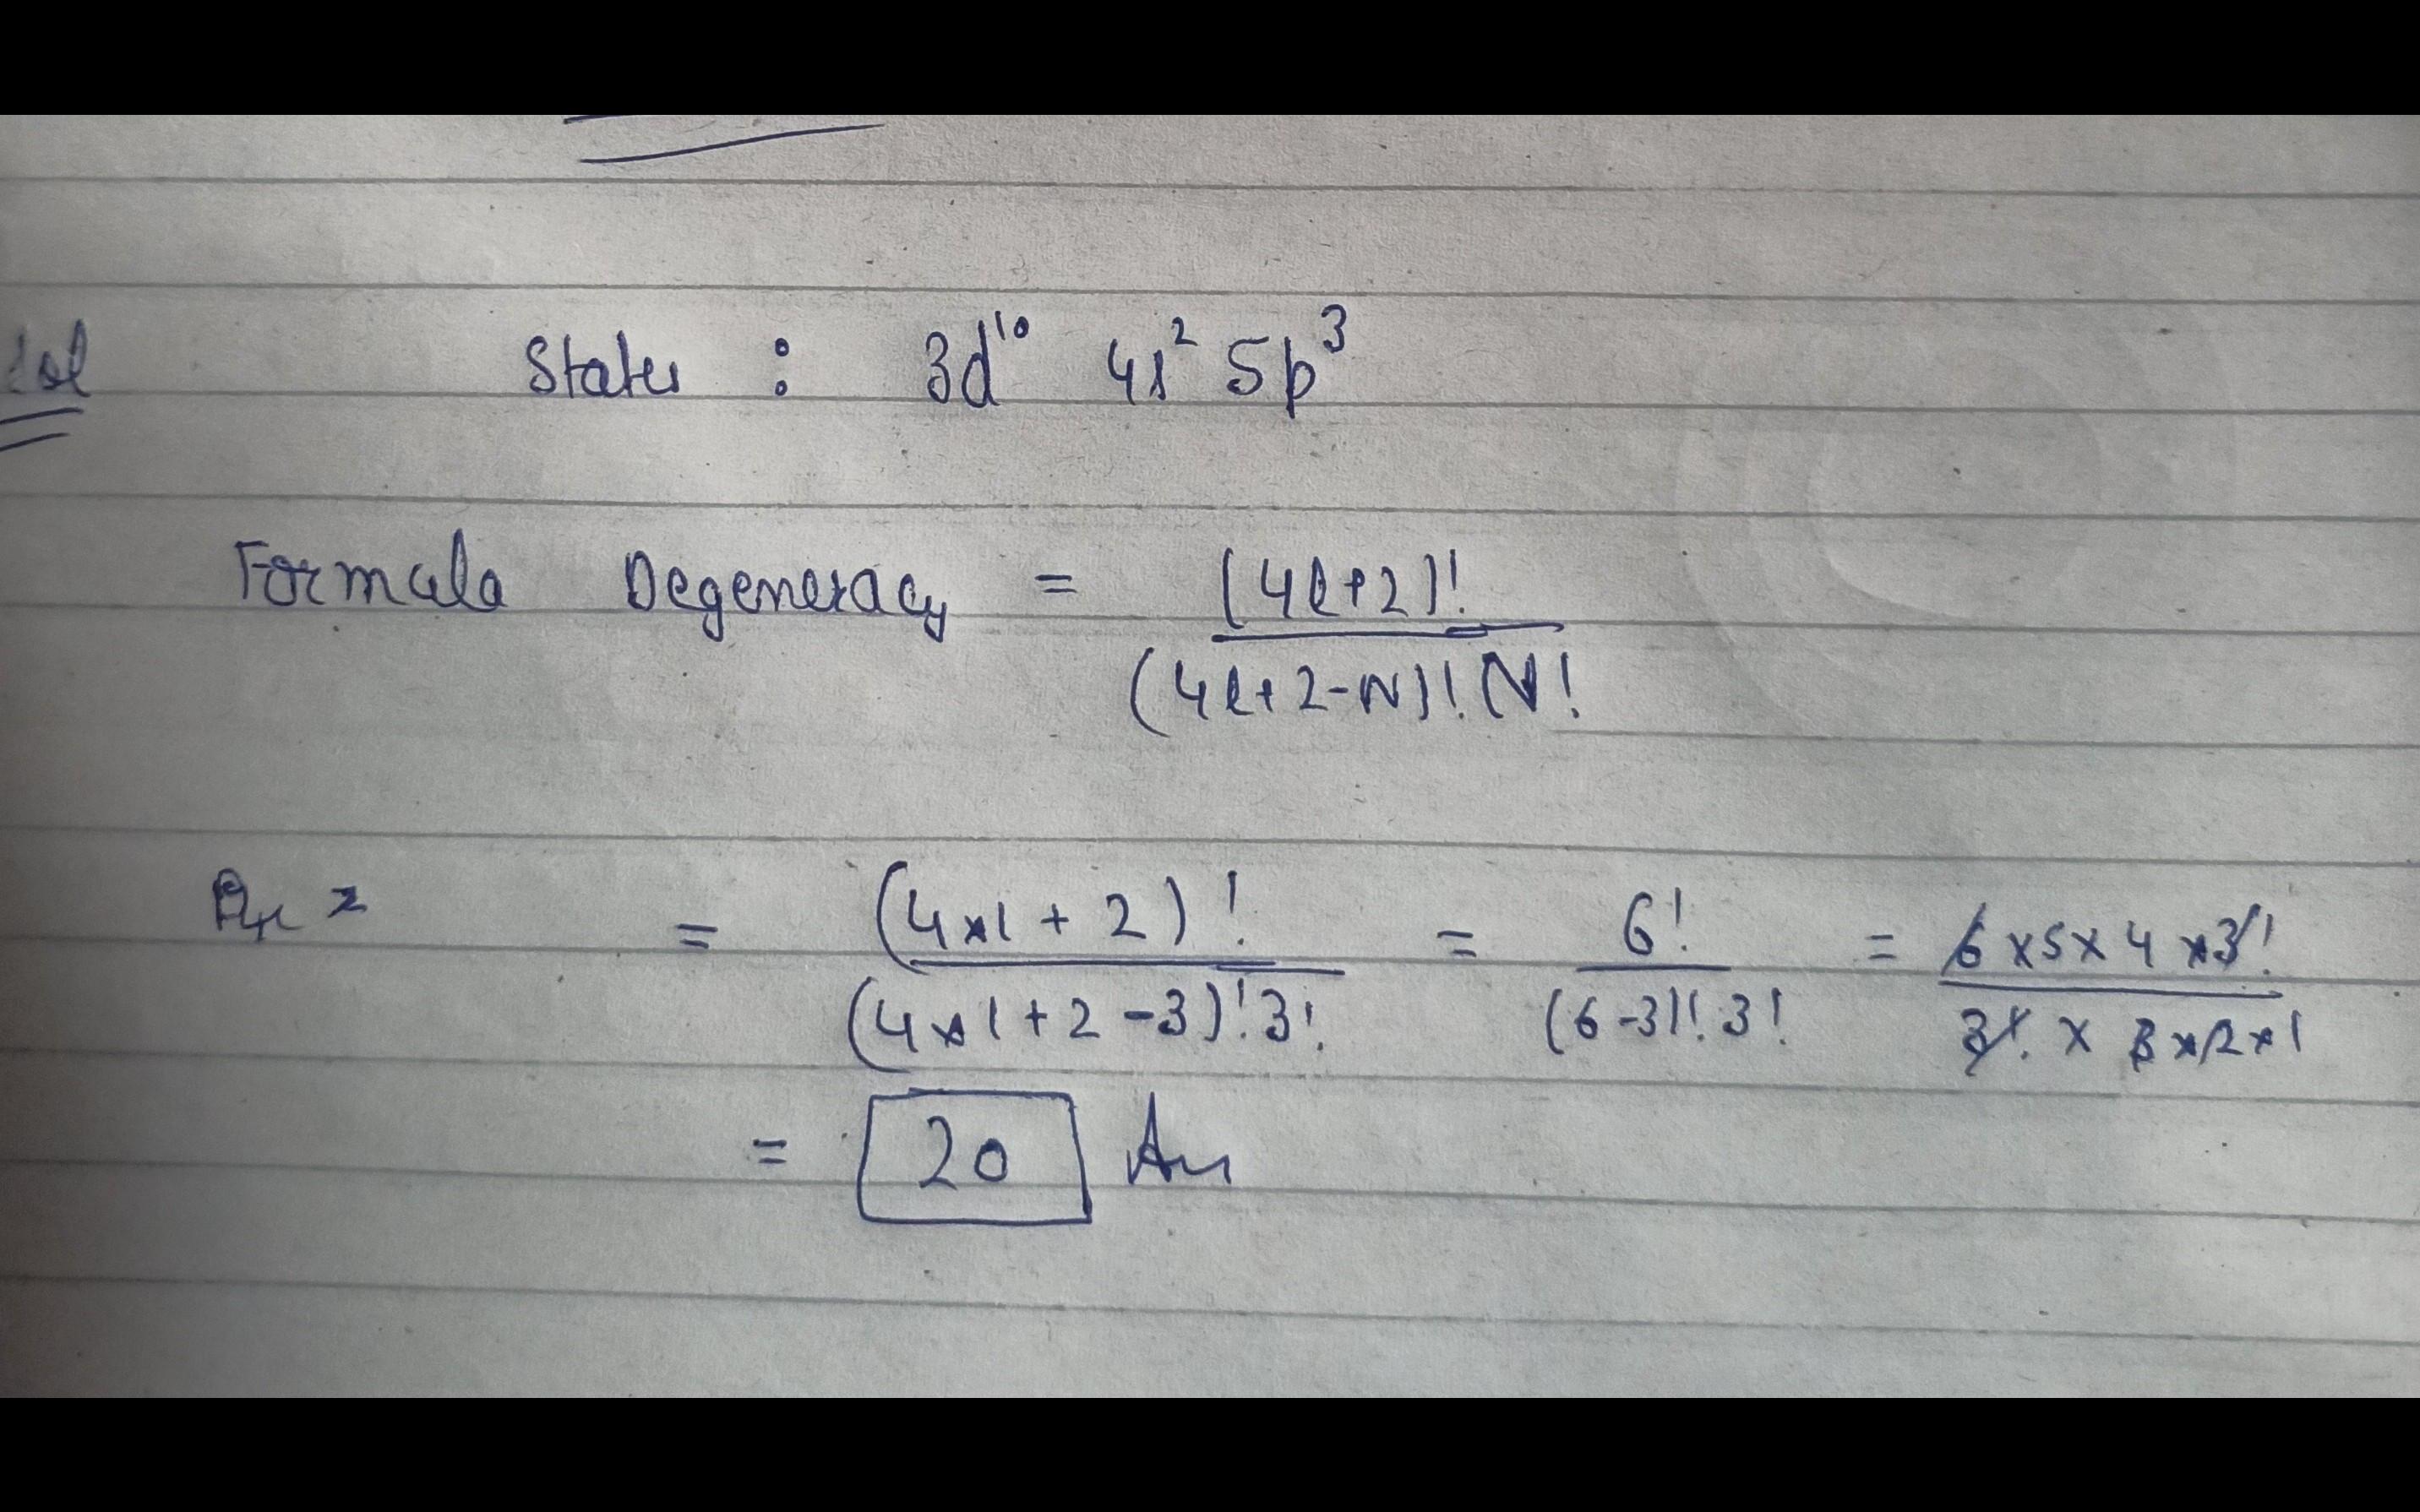 Sol
States : 3d¹⁰ 4s² 5p³
Formula Degeneracy = (4l+2)! / (4l+2-N)! N!
= (4×1+2)! / (4×1+2-3)! 3! = 6! / (6-3)! 3! = 6×5×4×3! / 3! × 3×2×1
= 20 Ans